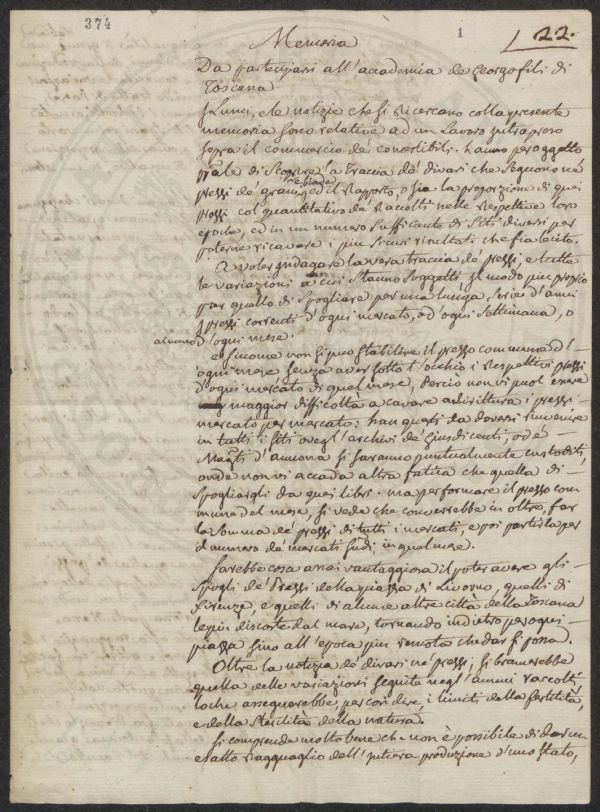 374
1
22.
Memoria
Da partecipàrsi all'accademia de Georgofili di
Toscana.
I Lumi, e le notizie che si ricercano colla presente
memoria sono relative ad un Lavoro intrapreso
sopra il commercio de' comestibili. hanno per oggetto
di Scoprire la traccia de' divari che seguono ne'
prezzi de' grani, e biade ed il rapporto, o sia la proporzione di quei
prezzi col quantitativo de' raccolti nelle respettive loro
epoche, ed in un numero sufficiente di Siti diversi per
poterne ricavare i più sicuri risultati che fia lecito.
A voler indagare la vera traccia de' prezzi, e tutte
le variazioni a cui Stanno Soggetti, il modo più proprio
par quello di Spogliare per una lunga Serie d'anni
i prezzi correnti d'ogni mercato, od ogni Settimana, o
almeno d'ogni mese.
e siccome non si può Stabilire il prezzo commune d'
ogni mese Senza aver sotto l'occhio i respettivi prezzi
d'ogni mercato di quel mese, perciò non vi può essere
maggior difficoltà a cavare addirittura i prezzi
mercato per mercato: han questi da doversi rinvenire
in tutti i Siti ove gl'archivi de' Giusdicenti, od e'
Mag.ti d'annona si saranno puntualmente custoditi,
onde non vi accada altra fatica che quella di
Spogliargli da quei libri. ma per formare il prezzo com
mune d'un mese, si vede che converrebbe in oltre, far
la Somma de' prezzi di tutti i mercati, e poi partirla per
il numero de' mercati in quel mese.
Sarebbe cosa assai vantaggiosa il poter avere gli
Spogli de' Prezzi della piazza di Livorno, quelli di
Firenze, e quelli di alcune altre città della Toscana
le più discoste dal mare, tornando indietro per ogni
piazza fino all'epoca più remota che dar si possa.
Oltre la notizia de' divari ne' prezzi, si bramerebbe
quella delle variazioni seguite negl'annui raccolti
lo che assegnerebbe, per così dire, i limiti della fertilità,
e della Sterilità della natura.
Si comprende molto bene che non è possibile di dar un
esatto ragguaglio dell'intiera produzione d'uno Stato,